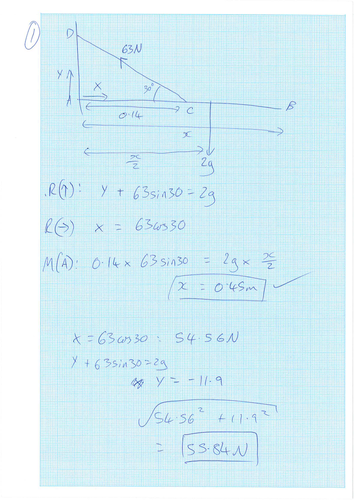 1
D
63N
Y
X
30°
A
C
B
0.14
x
x/2
2g
R(↑): Y + 63sin30 = 2g
R(→) X = 63cos30
M(A): 0.14 × 63sin30 = 2g × x/2
x = 0.45m ✓
X = 63cos30 = 54.56N
Y + 63sin30 = 2g
Y = -11.9
√54.56² + 11.9²
= 55.84N